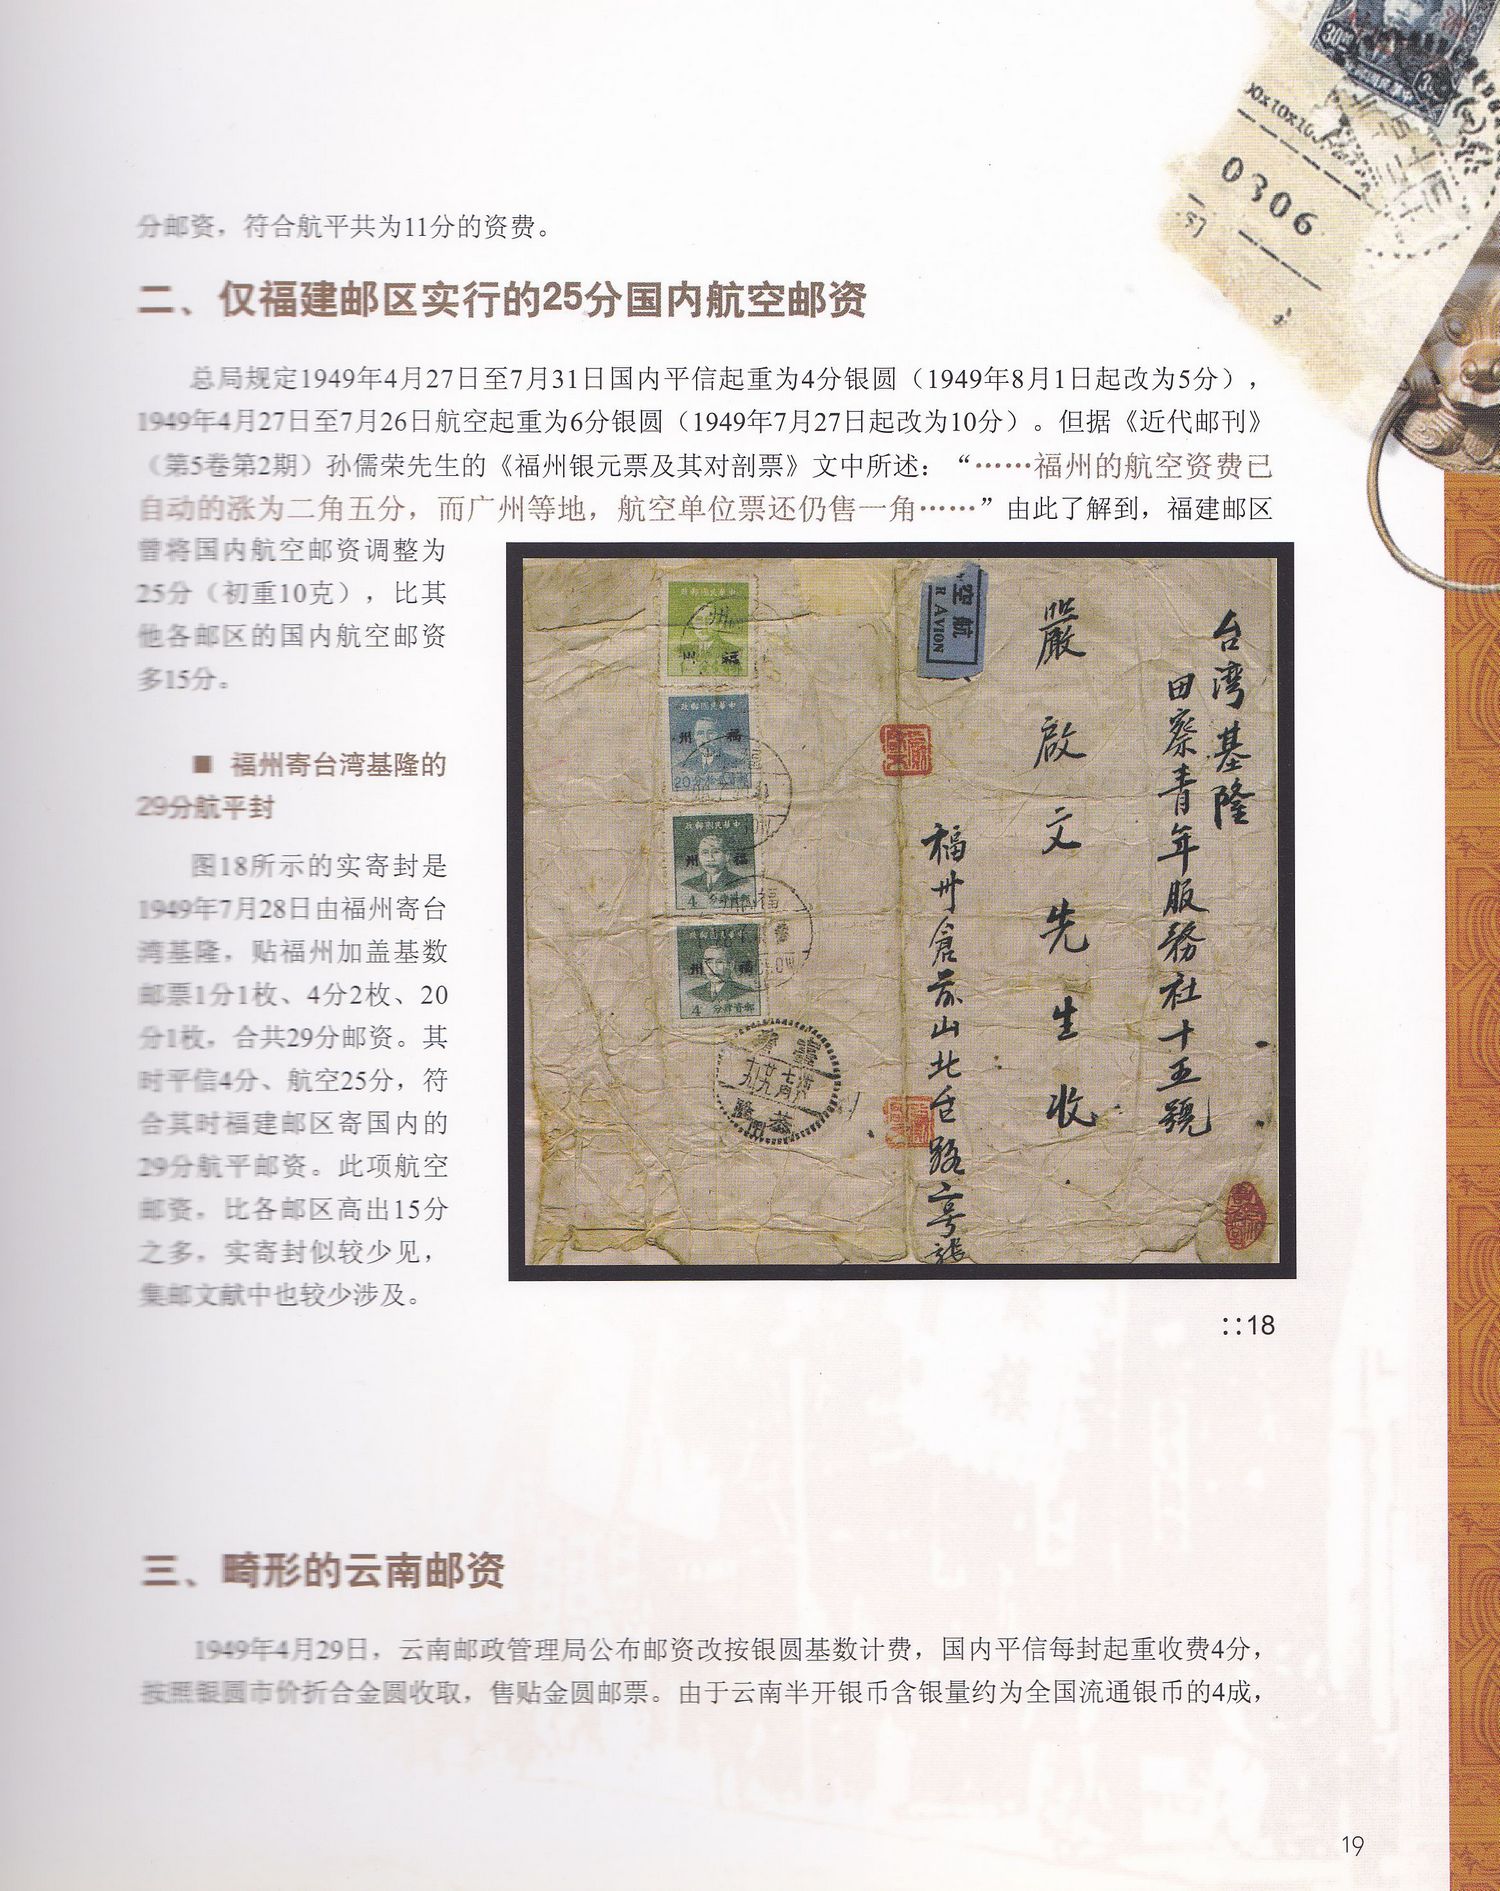 0306
分邮资，符合航平共为11分的资费。
二、仅福建邮区实行的25分国内航空邮资
总局规定1949年4月27日至7月31日国内平信起重为4分银圆（1949年8月1日起改为5分），
1949年4月27日至7月26日航空起重为6分银圆（1949年7月27日起改为10分）。但据《近代邮刊》
（第5卷第2期）孙儒荣先生的《福州银元票及其对剖票》文中所述：“……福州的航空资费已
自动的涨为二角五分，而广州等地，航空单位票还仍售一角……”由此了解到，福建邮区
曾将国内航空邮资调整为
25分（初重10克），比其
他各邮区的国内航空邮资
多15分。
■ 福州寄台湾基隆的
29分航平封
图18所示的实寄封是
1949年7月28日由福州寄台
湾基隆，贴福州加盖基数
邮票1分1枚、4分2枚、20
分1枚，合共29分邮资。其
时平信4分、航空25分，符
合其时福建邮区寄国内的
29分航平邮资。此项航空
邮资，比各邮区高出15分
之多，实寄封似较少见，
集邮文献中也较少涉及。
台湾基隆
田寮青年服務社十五號
嚴啟文先生收
航空
R AVION
中華民國郵政
福州
中華民國郵政
福州
20
中華民國郵政
福州
4
中華民國郵政
福州
4
::18
三、畸形的云南邮资
1949年4月29日，云南邮政管理局公布邮资改按银圆基数计费，国内平信每封起重收费4分，
按照银圆市价折合金圆收取，售贴金圆邮票。由于云南半开银币含银量约为全国流通银币的4成，
19